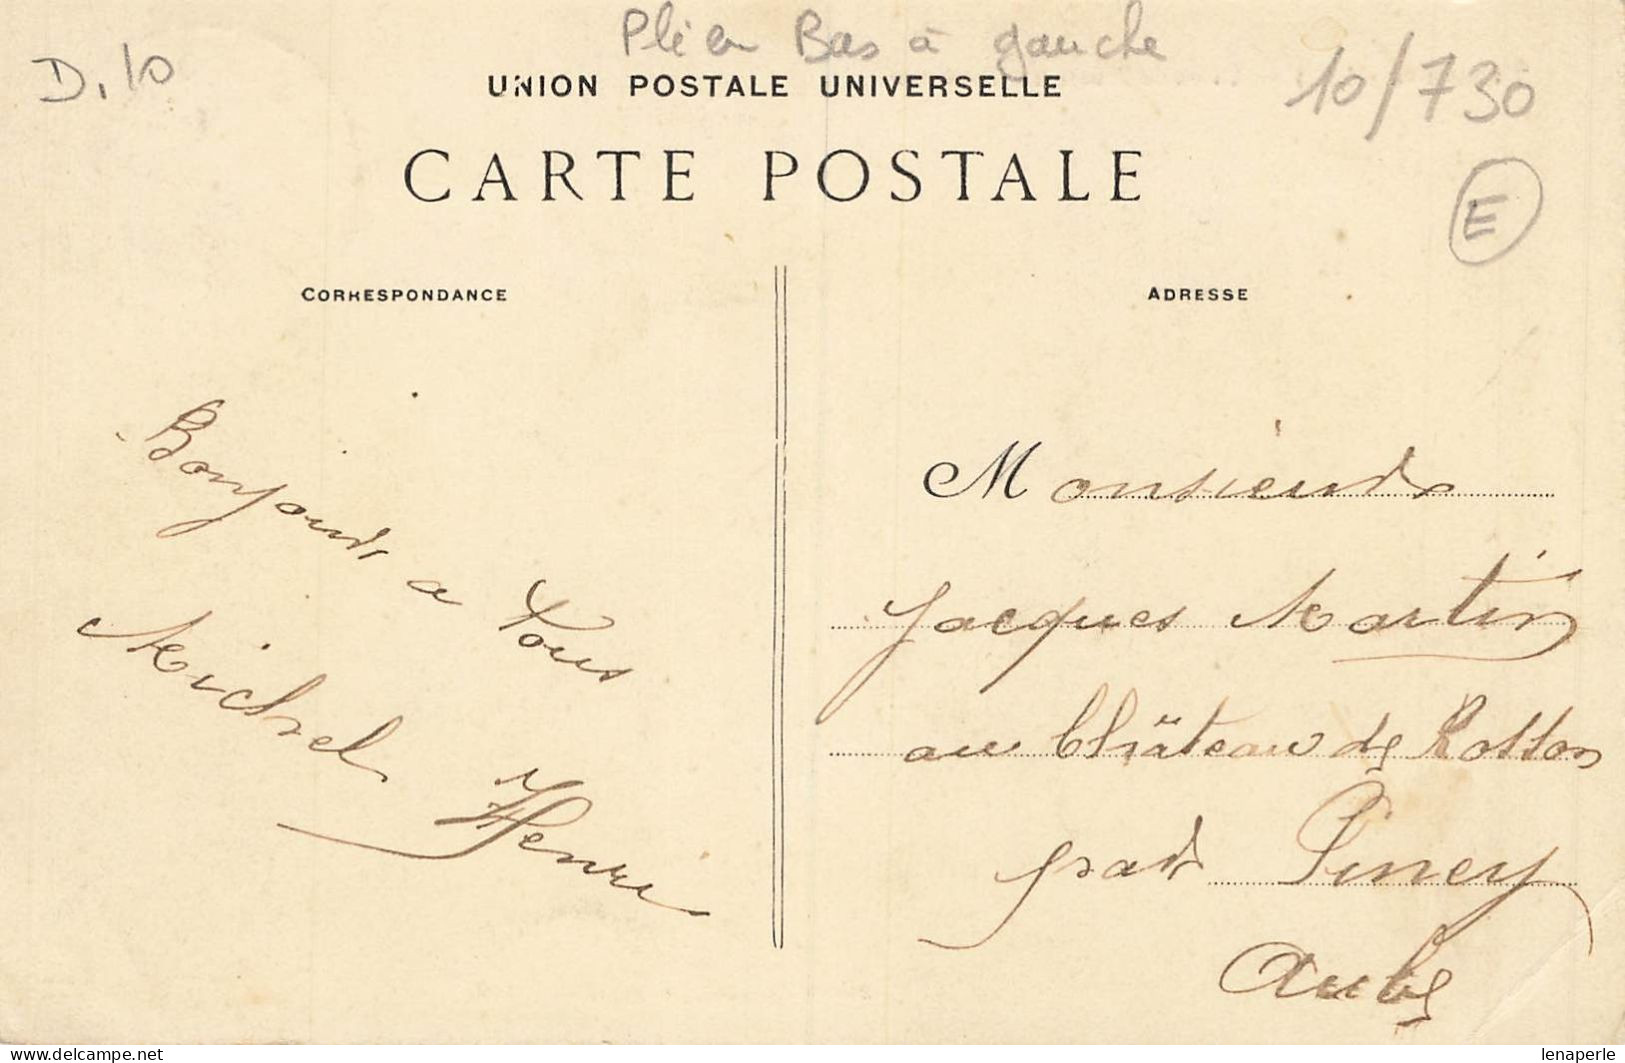 Plié en Bas à gauche
D.10
10/730
UNION POSTALE UNIVERSELLE
CARTE POSTALE
E
CORRESPONDANCE
ADRESSE
Bonjour a tous
Michel Henri
Monsieur
Jacques Martin
au Château de Rosson
par Piney
Aube
delcampe.net
lenaperle